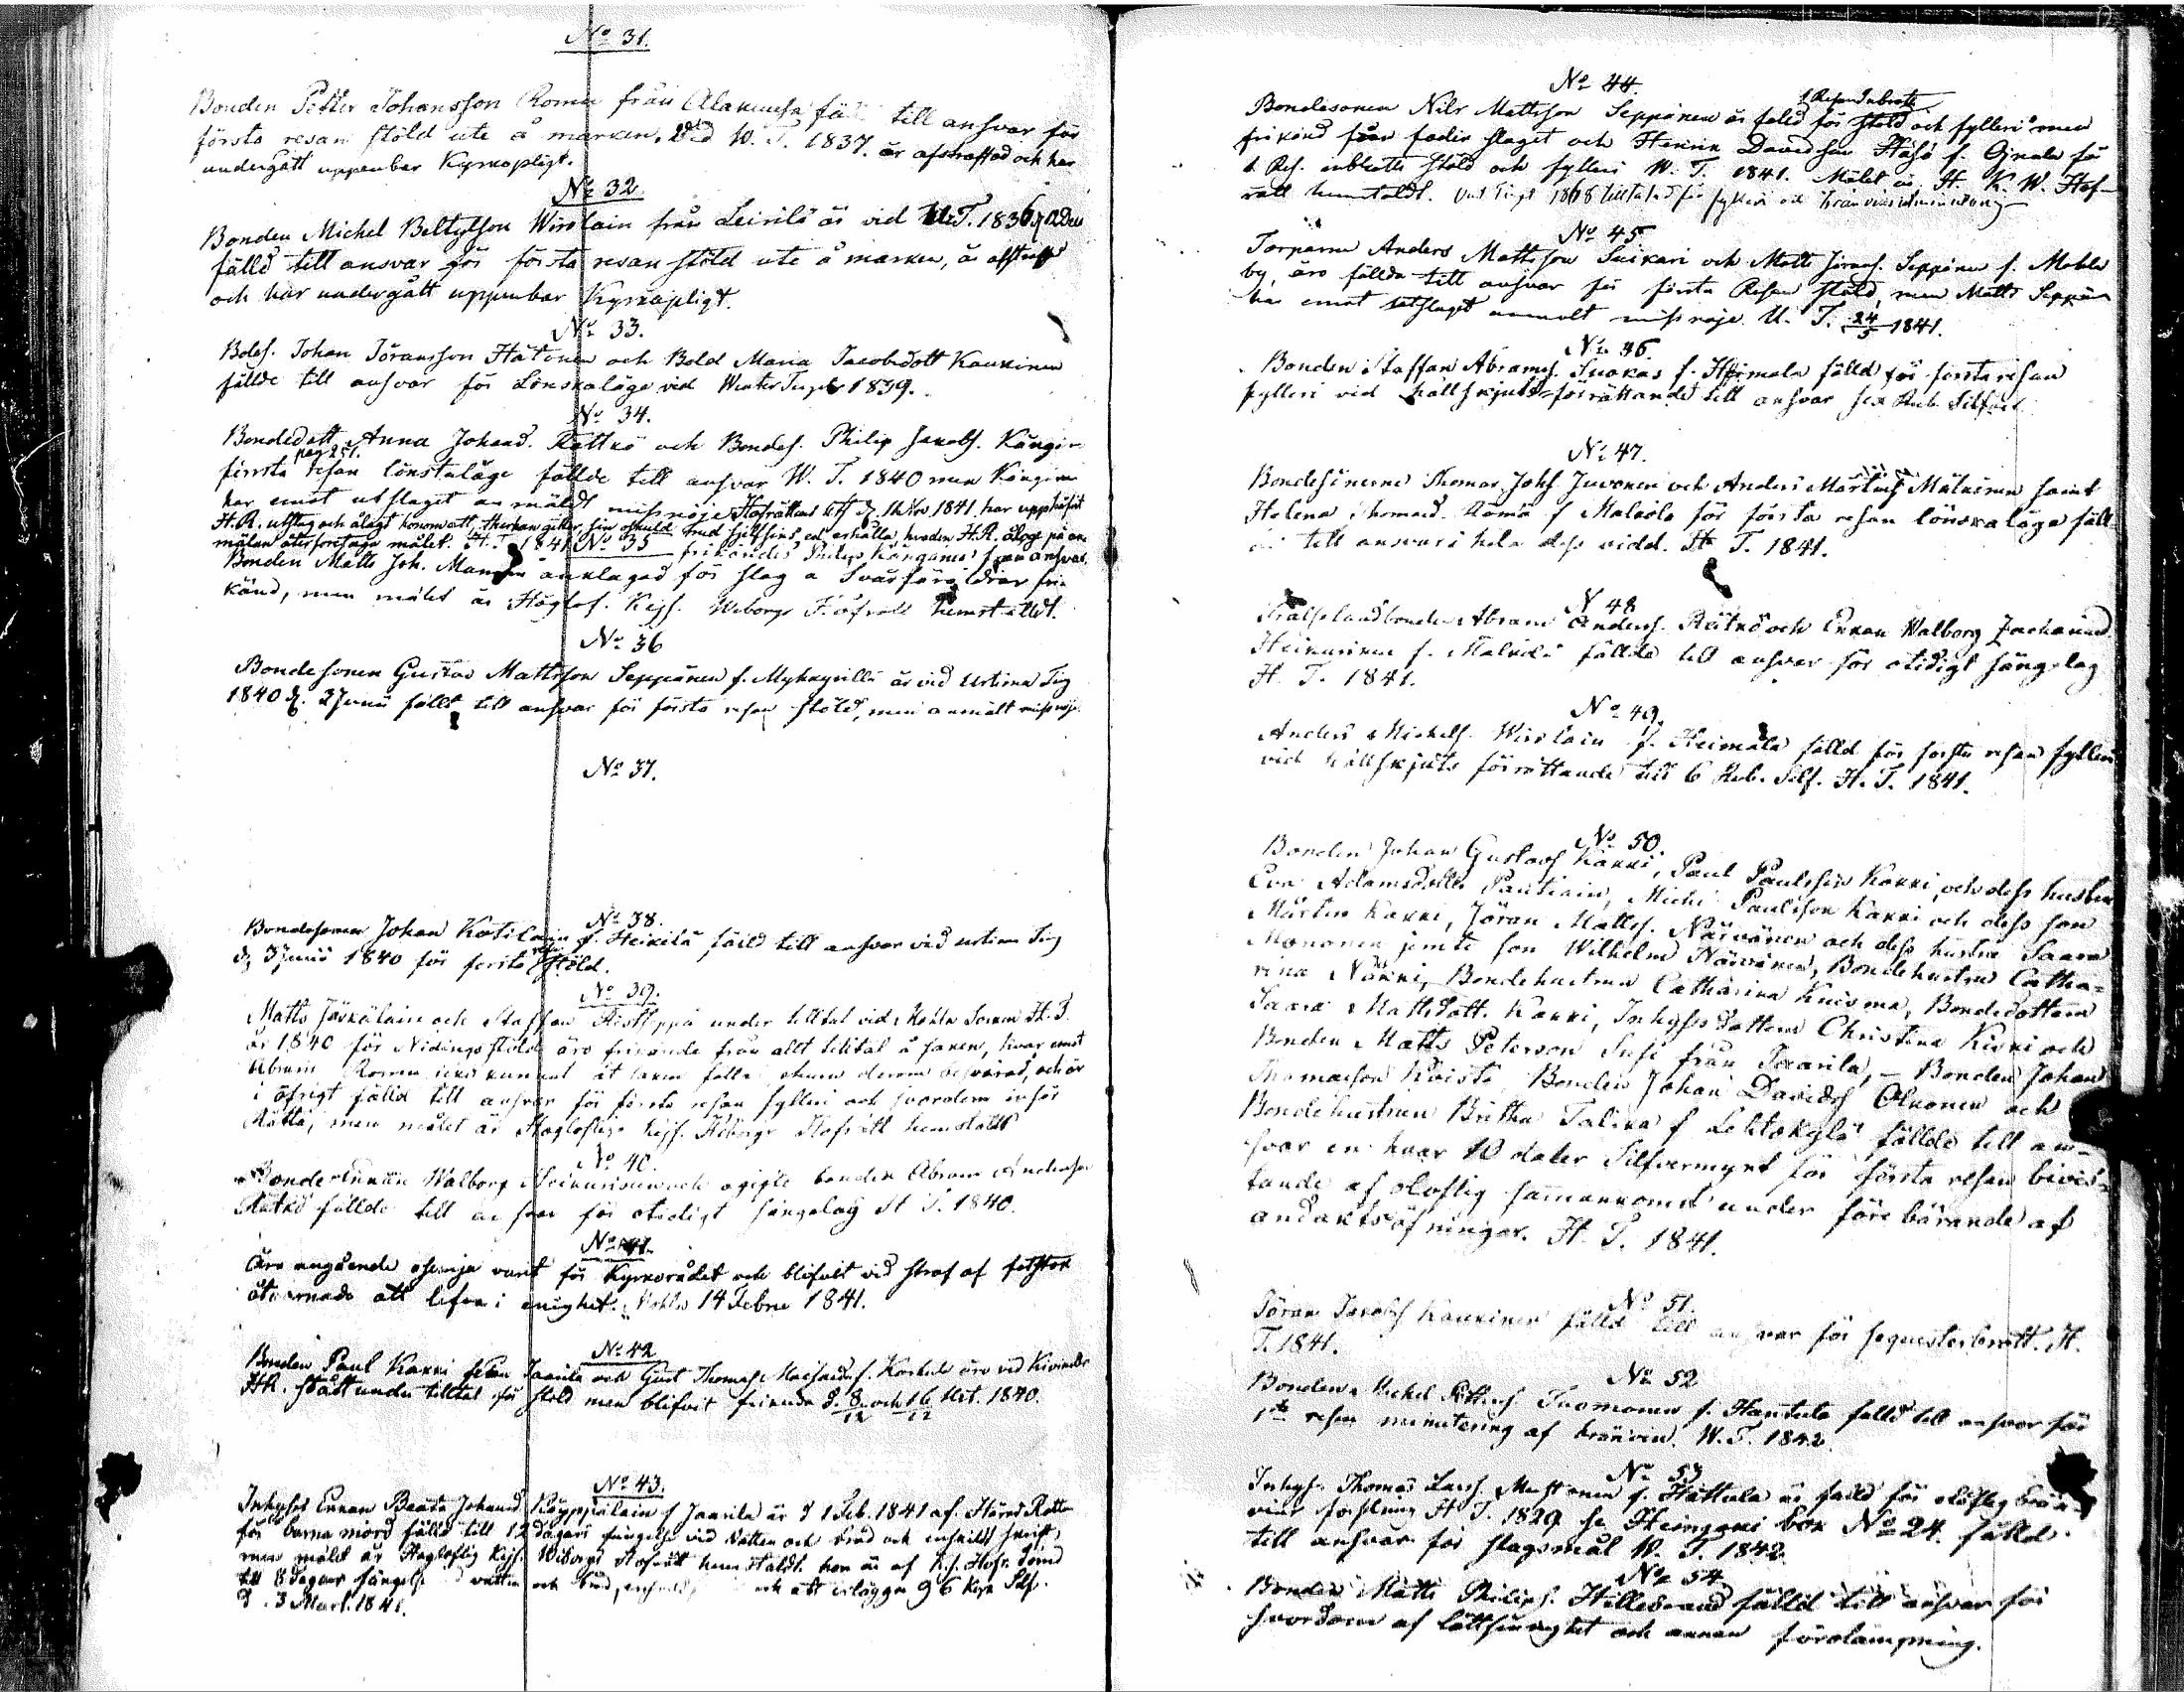 No 31.
Bonden Petter Johansson Roma från Alakuusa fäl till ansvar för
första resan stöld ute å marken, Vid W. T. 1837. är afstraffad och har
undergått uppenbar Kyrkopligt.
No 32.
Bonden Michel Beltylson Wirolain från Leinilä är vid W.T. 1836
fälld till ansvar för första resan stöld ute å marken, är afstraff
och har undergått uppenbar Kyrkopligt.
No 33.
Bdes. Johan Jöransson Hätonen och Bdd Maria Jacobsdott Kaukinen
fällde till ansvar för Lönskaläge vid Winter Tinget 1839.
No 34.
Bondedott Anna Johansd. Rättö och Bondes. Philip Jacobs. Kängin
pag 251.
första resan lönskaläge fällde till ansvar W. T. 1840 men Kängin
har emot utslaget anmäldt missnöje. Hofrättens 1841. har upphäfvit
H.R. utslag och ålagt honom att, sin oskuld med erhålla, hvaden H.R. ålogs på an
mälan återföretaga målet. H. T. 1841 frikändes Philip Känganen från ansvar.
No 35
Bonden Matts Joh. anklagad för slag å Svärföräldrar fri-
känd, men målet är Höglof. Kejs. Wiborgs Hofrätt hemstäldt.
No 36
Bondesonen Gustav Mattsson Seppänen f. Mykryvillä är vid Urtima Ting
1840 d. 3 Junii fälld till ansvar för första resan stöld, men anmält missnöje.
No 37.
No 38.
Bondesonen Johan Kotilainen f. Heikilä, fälld till ansvar vid urtima Ting
d. 3 Junii 1840 för första resan stöld.
No 39.
Matts Jäskäläin och Staffan under tilltal vid Mohla Socken H. T.
år 1840 för Nidings stöld äro frikände från allt tilltal å saken, hvar emot
Abram Romu icke kunnat åt saken fällas,
i öfrigt fälld till ansvar för första resan fylleri och svordom inför
Rätta, men målet är Högloflige Kejs. Wiborgs Hofrätt hemstäldt
No 40.
Bonde Enkan Walborg Heinunisen och ogigte bonden Abram Anderss.
Rätkö fällde till ansvar för otidigt sängelag H T. 1840.
No 41.
Äro angående osämja varit för Kyrkorådet och blifvit vid straf af fotstock
åtvarnade att lefva i enighet. Mohla 14 Febru 1841.
No 42
Bonden Paul Karri från Jaarila och Gust Thomass. f. Koskela äro vid Kivinebb
HR. stått under tilltal för stöld men blifvit frikände d. 8/12 och 16/12 Urt. 1840.
No 43.
Inhyses Enkan Beata Johansd. Käyppiälain f Jaarila är d 1 Feb. 1841 af Härads Rätten
för barna mord fälld till 12 dagars fängelse vid Vatten och bröd och enskildt skrift,
men målet är Högloflig Kejs. Wiborgs Hofrätt hem ställdt. hon är af K. Hofr. dömd
till 8 dagars fängelse vid vatten och bröd, och att erlägga 96 kop. Silf.
d. 3 Mart. 1841.
No 44.
1 Resan Inbrotts
Bondesonen Nils Mattsson Seppänen är fälld för stöld och fylleri men
frikänd från fader slaget och Henrik Davidsson Häsö f. för
1. Res. inbrotts stöld och fylleri W. T. 1841. Målet är H. K. W. Hof-
rätt hemstäldt. Vint Tinget 1868 tilltalad för fylleri och
No 45
Torparne Anders Mattsson Suikari och Matts Jörans. Seppänen f. Mohla
by, äro fällde till ansvar för första Resan stöld, men Matts Seppän
har emot utslaget anmält missnöje. U. T. 24/5 1841.
No 46.
Bonden Staffan Abrams. Suokas f. Heimala fälld för första resan
fylleri vid hållskjuts förrättande till ansvar sex Rub. Silfver
No 47.
Bondesönerne Thomas Johs. Juvonen och Anders Mårtens Mälkönen samt
Helena Thomasd. Römö f Malkola för första resan lönskaläge fäll-
de till ansvar i hela dess vidd. H T. 1841.
N 48
Frälselandbonden Abram Anderss. Rätkö och Enkan Walborg Zachariad
Heinunisen f. Malkola fällde till ansvar för otidigt sängelag
H. T. 1841.
No 49.
Anders Michelss. Wirolain f. Heimala fälld för första resan fylleri
vid hållskjuts förrättande till 6 Rub. Silf. H. T. 1841.
No 50.
Bonden Johan Gustafs Karri, Paul Paulsson Karri, och dess hustru
Eva Adamsdotter Pautiain, Michel Paulsson Karri och dess son
Mårten Karri, Jöran Mattss. Närvänen och dess hustru Saara
Mononen jemte son Wilhelm Närvänen, Bondehustrun Catha-
rina Närri, Bondehustrun Catharina Kuisma, Bondedottern
Saara Mattsdott. Karri, Inhyses dottern Christina Kiuri och
Bonden Matts Peterson Susi från Jaarila, — Bonden Johan
Thomasson Koisto, Bonden Johan Davidss Olkonen och
Bondehustrun Britha Talika f Lehtokylä fällde till an-
svar en hvar 10 daler Silfvermynt för första resan bivis-
tande af olaflig sammankomst under föregifvande af
andaktsöfningar. H. T. 1841.
No 51.
Jöran Jacobs Kaukinen fälld till ansvar för sequesterbrott. H.
T. 1841.
No 52
Bonden Michel Tuomonen f. Hanttula fälld till ansvar för
1sta resan minutering af bränvin. W. T. 1842.
No 53
Inhys. Thomas Larss. Mustonen f. Hättula är fälld för oloflig bränn
vins försäljning H T. 1829 se Heinjoki bok No 24. fälld
till ansvar för slagsmål W. T. 1842.
No 54
Bonden Matts Philips. Hillebrand fälld till ansvar för
svordom af lättsinnighet och annan förolämpning.